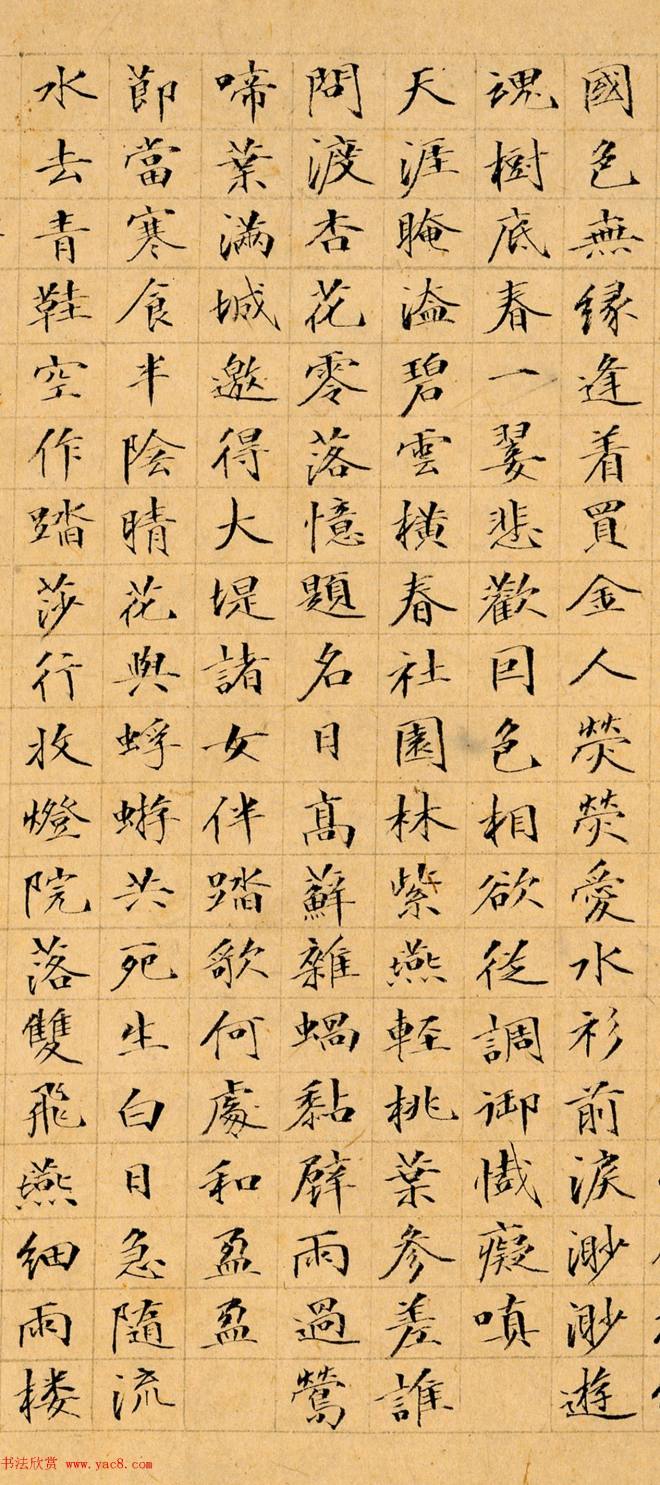 國色無緣逢着買金人熒熒愛水衫前淚渺渺遊
魂樹底春一霎悲歡回色相欲從調御懺癡嗔
天涯晻溘碧雲橫春社園林紫燕輕桃葉參差誰
問渡杏花零落憶題名日高蘇雜蝸黏壁雨過鶯
啼葉滿城邀得大堤諸女伴踏歌何處和盈盈
節當寒食半陰晴花與蜉蝣共死生白日急隨流
水去青鞋空作踏莎行收燈院落雙飛燕細雨楼
书法欣赏 www.yac8.com